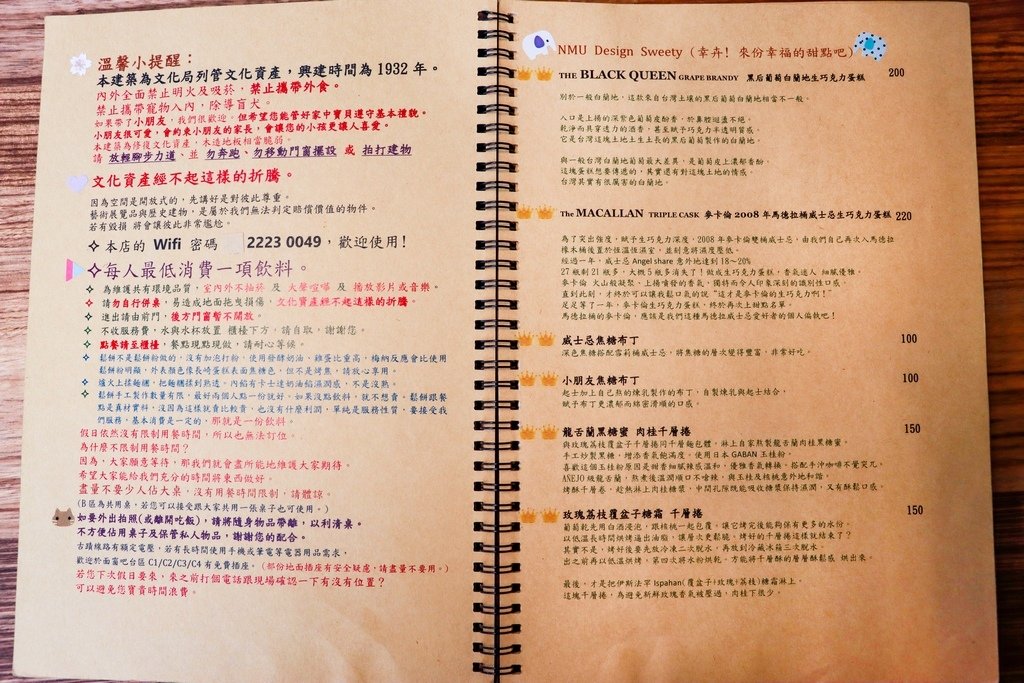 溫馨小提醒：
本建築為文化局列管文化資產，興建時間為 1932 年。
內外全面禁止明火及吸菸，禁止攜帶外食。
禁止攜帶寵物入內，除導盲犬。
如果帶了小朋友，我們很歡迎。但希望您能管好家中寶貝遵守基本禮貌。
小朋友很可愛，會約束小朋友的家長，會讓您的小孩更讓人喜愛。
本建築為修復文化資產，木造地板相當脆弱。
請 放輕腳步力道、並 勿奔跑、勿移動門窗擺設 或 拍打建物
文化資產經不起這樣的折騰。
因為空間是開放式的，先講好是對彼此尊重。
藝術展覽品與歷史建物，是屬於我們無法判定賠償價值的物件。
若有毀損 將會讓彼此非常尷尬。
本店的 Wifi 密碼 2223 0049，歡迎使用!
每人最低消費一項飲料。
為維護共有環境品質，室內外不抽菸 及 大聲喧嘩 及 播放影片或音樂。
請勿自行併桌，易造成地面拖曳損傷，文化資產經不起這樣的折騰。
進出請由前門，後方門窗暫不開放。
不收服務費，水與水杯放置 櫃檯下方，請自取，謝謝您。
點餐請至櫃檯，餐點現點現做，請耐心等候。
鬆餅不是鬆餅粉做的，沒有加泡打粉，使用發酵奶油、雞蛋比重高，梅納反應會比使用
鬆餅粉明顯，外表顏色像長崎蛋糕表面焦糖色，但不是烤焦，請放心享用。
爐火上揉麵糰，把麵糰揉到熟透。內餡有卡士達奶油餡濕潤感，不是沒熟。
鬆餅手工製作數量有限，最好兩個人點一份就好。如果沒點飲料，就不想賣。鬆餅跟餐
點是真材實料，沒因為這樣就賣比較貴，也沒有什麼利潤，單純是服務性質，要接受我
們服務，基本消費是一定的，那就是一份飲料。
假日依然沒有限制用餐時間，所以也無法訂位。
為什麼不限制用餐時間？
因為，大家願意等待，那我們就會盡所能地維護大家期待。
希望大家能給我們充分的時間將東西做好。
盡量不要少人佔大桌，沒有用餐時間限制，請體諒。
(B 區為共用桌，若您可以接受跟大家共用一張桌子也可使用。)
如要外出拍照(或離開吃飯)，請將隨身物品帶離，以利清桌。
不方便佔用桌子及保管私人物品，謝謝您的配合。
古蹟線路有額定電壓，若有長時間使用手機或筆電等電器用品需求，
歡迎於面窗吧台區 C1/C2/C3/C4 有免費插座。(部份地面插座有安全疑慮，請盡量不要用。)
若您下次假日要來，來之前打個電話跟現場確認一下有沒有位置？
可以避免您寶貴時間浪費。
NMU Design Sweety (幸卉! 來份幸福的甜點吧)
THE BLACK QUEEN GRAPE BRANDY 黑后葡萄白蘭地生巧克力蛋糕 200
別於一般白蘭地，這款來自台灣土壤的黑后葡萄白蘭地相當不一般。
入口是上揚的深紫色葡萄皮酚香，於鼻腔迴盪不絕。
乾淨而具穿透力的酒香，甚至賦予巧克力半透明質感。
它是台灣這塊土地上生上長的黑后葡萄製作的白蘭地。
與一般台灣白蘭地葡萄最大差異，是葡萄皮上濃郁香酚。
這塊蛋糕想要傳遞的，其實還有對這塊土地的情感。
台灣其實有很厲害的白蘭地。
The MACALLAN TRIPLE CASK 麥卡倫 2008 年馬德拉桶威士忌生巧克力蛋糕 220
為了突出強度，賦予生巧克力深度，2008 年麥卡倫雙桶威士忌，由我們自己再次入馬德拉
橡木桶後置於恆溫恆濕室，並刻意將濕度壓低。
經過一年，威士忌 Angel share 意外地達到 18～20%
27 瓶剩 21 瓶多，大概 5 瓶多消失了！做成生巧克力蛋糕，香氣迷人 細膩優雅。
麥卡倫 火山般凝聚、上揚噴發的香氣，獨特而令人印象深刻的識別性口感。
直到此刻，才終於可以讓我鬆口氣的說 "這才是麥卡倫的生巧克力啊！"
足足等了一年，麥卡倫生巧克力蛋糕，終於再次上甜點名單。
馬德拉桶的麥卡倫，應該是我們這種馬德拉威士忌愛好者的個人偏執吧！
威士忌焦糖布丁 100
深色焦糖搭配雪莉桶威士忌，將焦糖的層次變得豐富，非常好吃。
小朋友焦糖布丁 100
起士加上自己熬的煉乳製作的布丁，自製煉乳與起士結合，
賦予布丁更濃郁而綿密滑順的口感。
龍舌蘭黑糖蜜 肉桂千層捲 150
與玫瑰荔枝覆盆子千層捲同千層麵包體。淋上自家熬製龍舌蘭肉桂黑糖蜜。
手工炒製黑糖，增添香氣飽滿度，使用日本 GABAN 玉桂粉。
喜歡這個玉桂粉原因是甜香細膩辣感溫和，優雅香氣轉換，搭配手沖咖啡不覺突兀。
AÑEJO 級龍舌蘭，熬煮後溫潤順口不嗆辣，與玉桂及核桃意外地和諧。
烤酥千層捲，趁熱淋上肉桂糖漿，中間孔隙既能吸收糖漿保持濕潤，又有酥鬆口感。
玫瑰荔枝覆盆子糖霜 千層捲 150
葡萄乾先用白酒浸泡，跟核桃一起包覆，讓它烤完後能夠保有更多的水份。
以低溫長時間烘烤逼出油脂，讓層次更鬆脆。烤好的千層捲這樣就結束了？
其實不是，烤好後要先放冷凍二次脫水，再放到冷藏冰箱三次脫水。
出之前再以低溫烘烤，第四次將水粉烘乾，方能將千層酥的層層酥鬆感 烘出來。
最後，才是把伊斯法罕 Ispahan(覆盆子+玫瑰+荔枝)糖霜淋上
這塊千層捲，為避免新鮮玫瑰香氣被壓過，肉桂下很少。